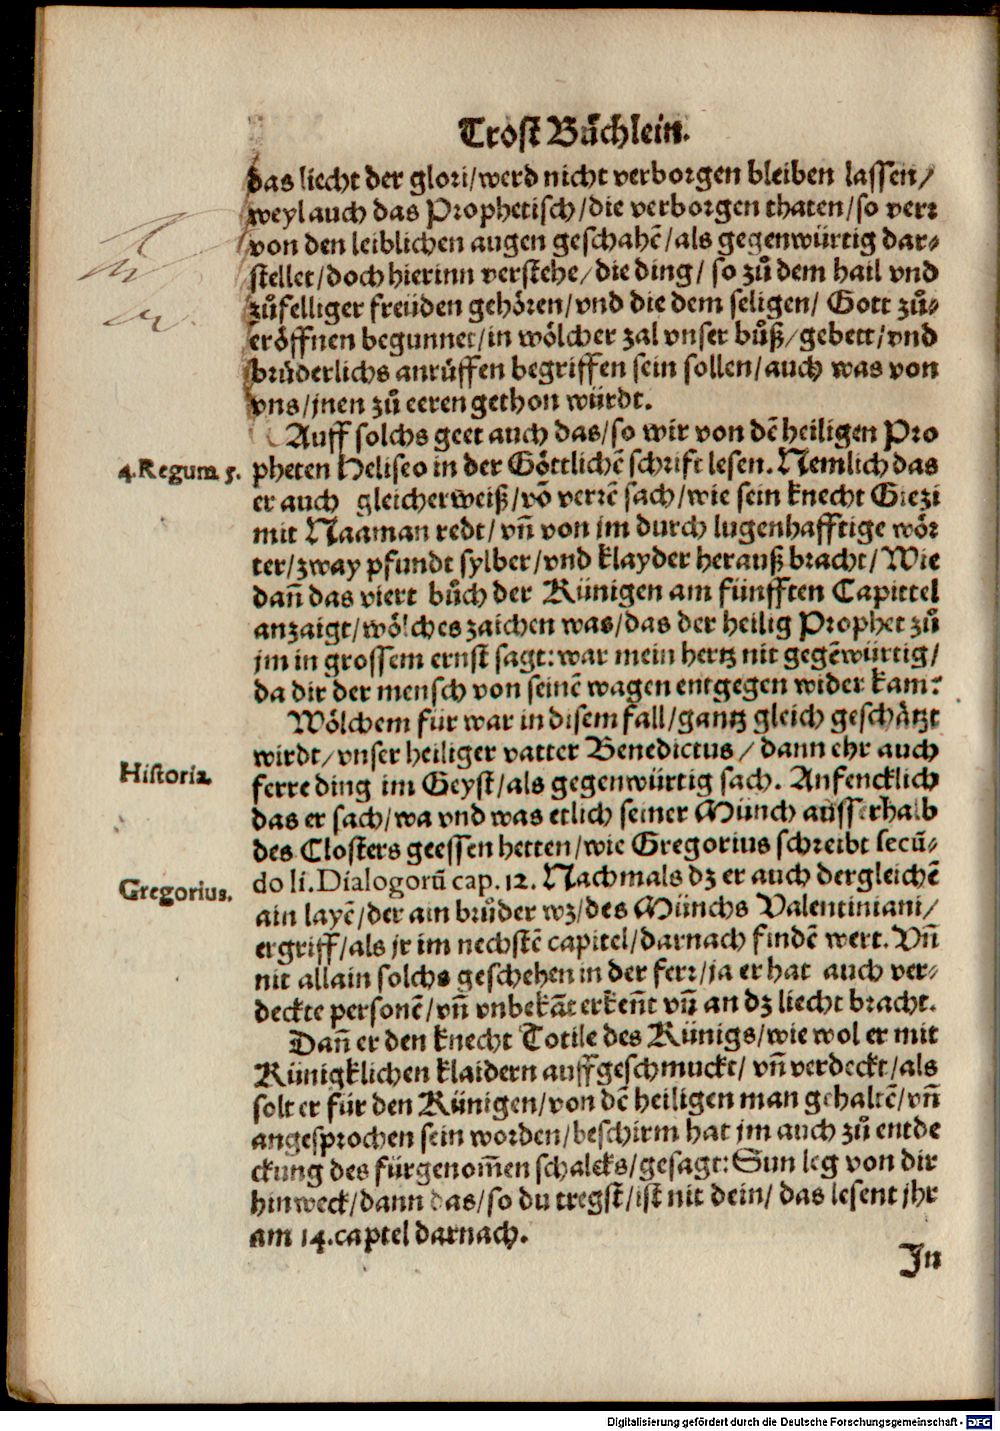 Trost Bůchlein.
das liecht der glori/werd nicht verborgen bleiben lassen/
weyl auch das Prophetisch/die verborgen thaten/so verr
von den leiblichen augen geschahẽ/als gegenwürtig dar-
stellet/doch hierinn verstehe/die ding/ so zů dem hail vnd
zůfelliger freüden gehören/vnd die dem seligen/ Gott zů-
eröffnen begunnet/in wölcher zal vnser bůß/gebett/vnd
brůderlichs anrůffen begriffen sein sollen/auch was von
vns/jnen zů eeren gethon würdt.
Auff solchs geet auch das/so wir von dẽ heiligen Pro
4.Regum 5.
pheten Heliseo in der Göttlichẽ schrift lesen. Nemlich das
er auch gleicherweiß/võ verrẽ sach/wie sein knecht Giezi
mit Naaman redt/vñ von jm durch lugenhafftige wör
ter/zway pfundt sylber/vnd klayder herauß bracht/Wie
dañ das viert bůch der Künigen am fünfften Capittel
anzaigt/wölches zaichen was/das der heilig Prophet zů
jm in grossem ernst sagt: war mein hertz nit gegẽwürtig/
da dir der mensch von seinẽ wagen entgegen wider kam?
Wölchem für war in disem fall/gantz gleich geschätzt
wirdt/vnser heiliger vatter Benedictus/ dann ehr auch
Historia.
ferre ding im Geyst/als gegenwürtig sach. Anfencklich
das er sach/wa vnd was etlich seiner Münch ausserhalb
des Closters geessen hetten/wie Gregorius schreibt secũ-
do li. Dialogorũ cap. 12. Nachmals dz er auch dergleichẽ
Gregorius.
ain layẽ/der ain brůder wz/des Münchs Valentiniani/
ergriff/als jr im nechstẽ capitel/darnach findẽ wert. Vñ
nit allain solchs geschehen in der ferr/ja er hat auch ver-
deckte personẽ/vñ vnbekãt erkeñt vñ an dz liecht bracht.
Dañ er den knecht Totile des Künigs/wie wol er mit
Künigklichen klaidern auffgeschmuckt/ vñ verdeckt/als
solt er für den Künigen/von dẽ heiligen man gehaltẽ/vñ
angesprochen sein worden/beschirm hat jm auch zů entde
ckung des fürgenom̃en schalcks/gesagt: Sun leg von dir
hinweck/dann das/so du tregst/ist nit dein/ das lesent jhr
am 14.captel darnach.
In
Digitalisierung gefördert durch die Deutsche Forschungsgemeinschaft - DFG